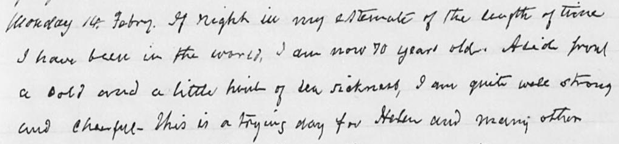 Monday 14. Febry. If right in my estemate of the length of time
I have been in the world, I am now 70 years old. Aside from
a cold and a little hint of sea sickness, I am quite well strong
and cheerful - This is a trying day for Helen and many other